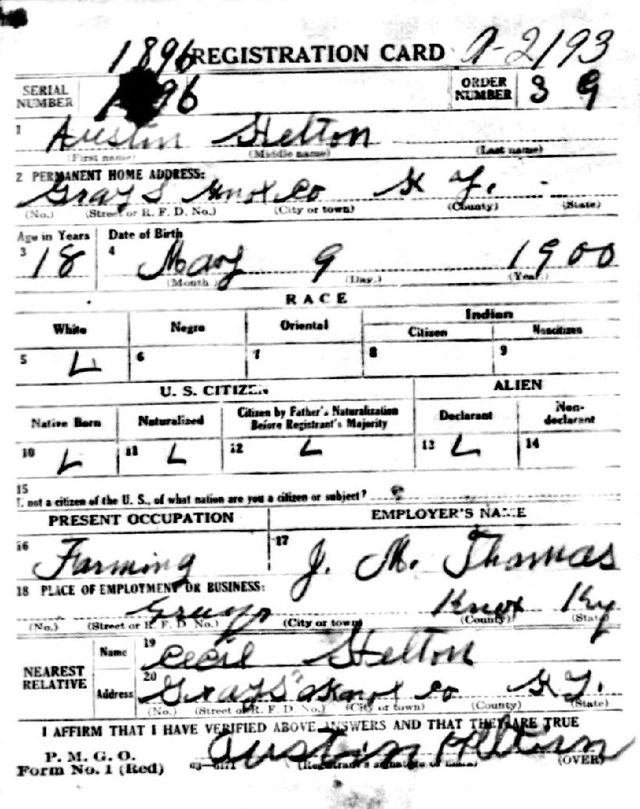 1896 REGISTRATION CARD A-2193
SERIAL NUMBER 96 ORDER NUMBER 39
1 Austin Helton
(First name) (Middle name) (Last name)
2 PERMANENT HOME ADDRESS:
Grays Knox Co K Y.
(No.) (Street or R. F. D. No.) (City or town) (County) (State)
Age in Years Date of Birth
3 18 4 May 9 1900
(Month.) (Day.) (Year.)
RACE
White Negro Oriental Indian
Citizen Noncitizen
5 L 6 7 8 9
U. S. CITIZEN ALIEN
Native Born Naturalized Citizen by Father's Naturalization Before Registrant's Majority Declarant Non-declarant
10 L 11 L 12 L 13 L 14
15
not a citizen of the U. S., of what nation are you a citizen or subject?
PRESENT OCCUPATION EMPLOYER'S NAME
16 Farming 17 J. M. Thomas
18 PLACE OF EMPLOYMENT OR BUSINESS:
Grays Knox Ky
(No.) (Street or R. F. D. No.) (City or town) (County) (State)
NEAREST RELATIVE Name 19 Cecil Helton
Address 20 Grays Knox Co K Y.
(No.) (Street or R. F. D. No.) (City or town) (County) (State)
I AFFIRM THAT I HAVE VERIFIED ABOVE ANSWERS AND THAT THEY ARE TRUE
P. M. G. O.
Form No. 1 (Red) Austin Helton
(Registrant's signature or mark) (OVER)